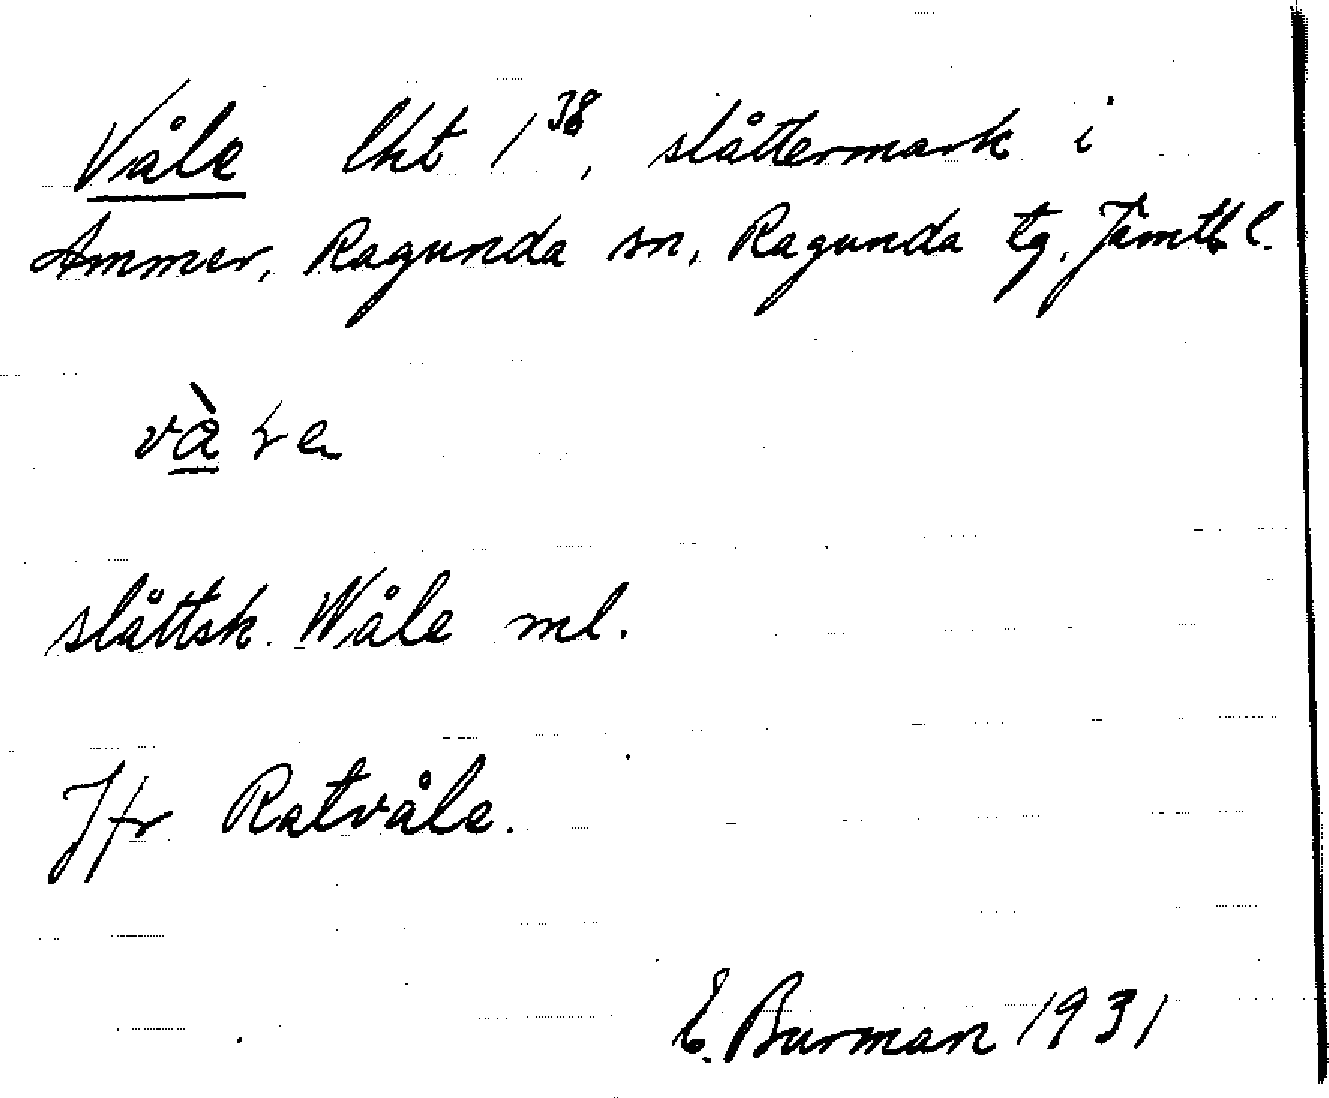 Våle lkt 1 38, slåttermark i
Ammer, Ragunda sn, Ragunda tg. Jämtl l.
slåttsk. Wåle ml.
Jfr Ratvåle.
E. Burman 1931